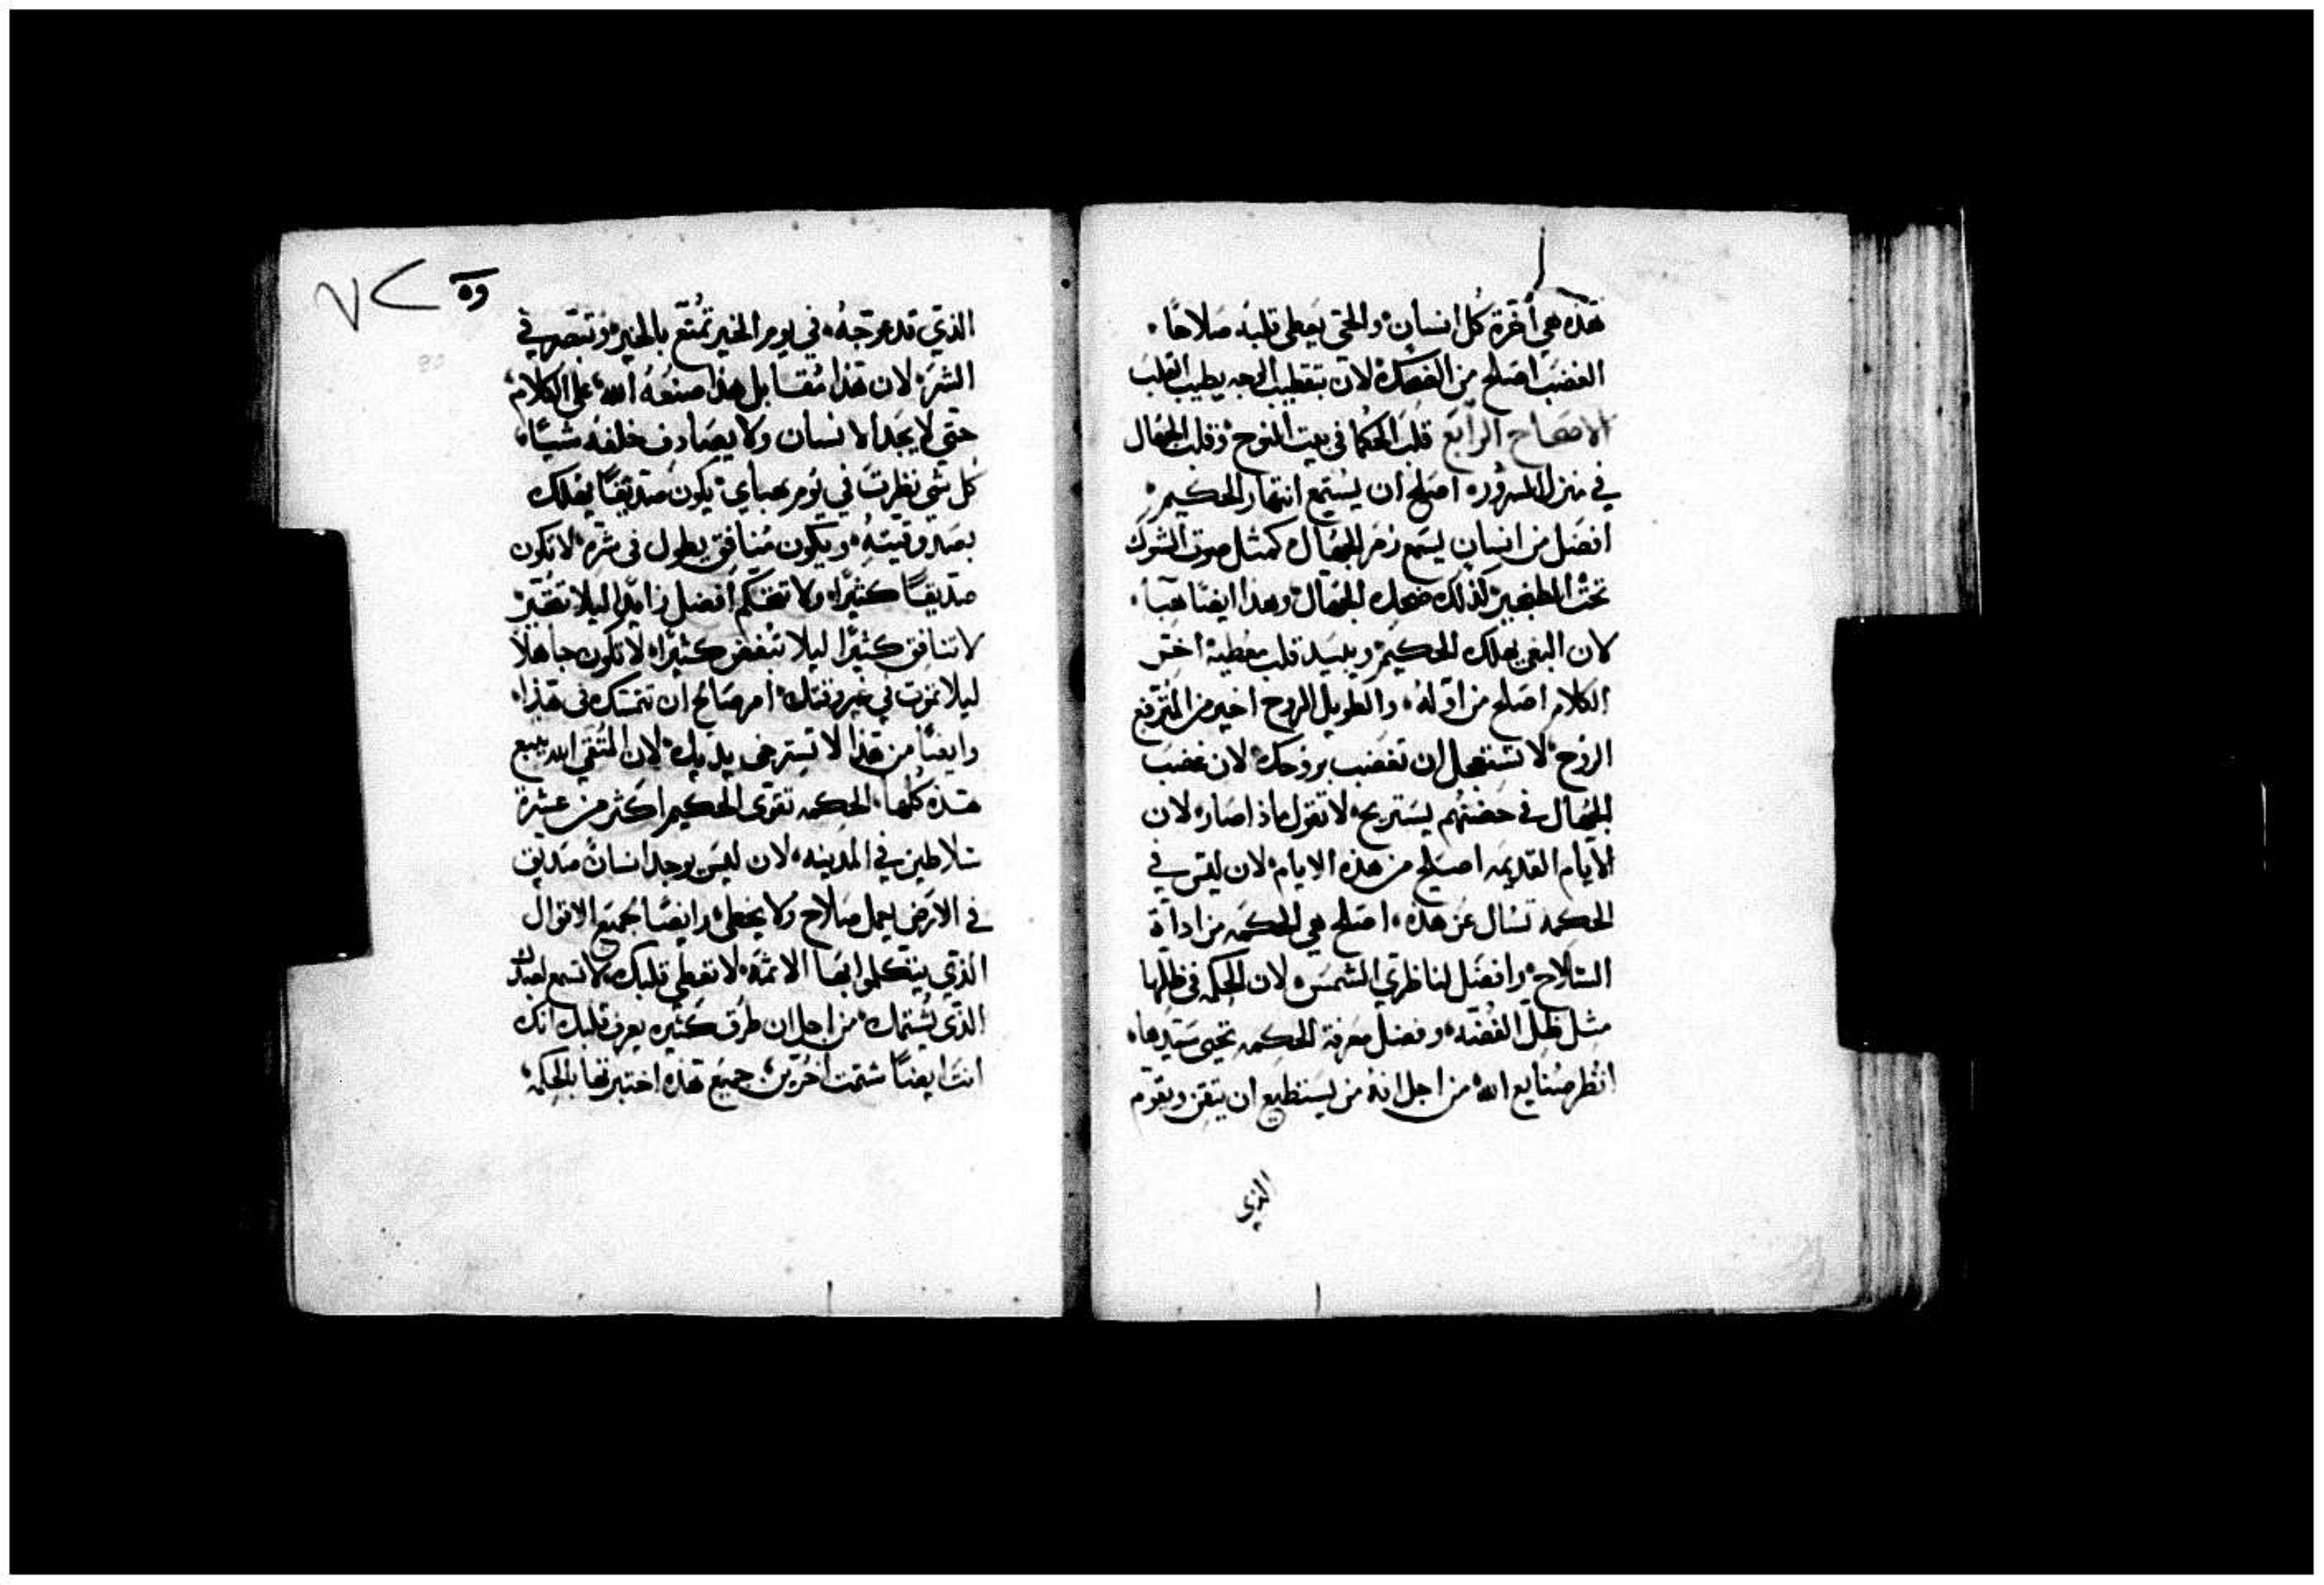 هذه هي آخرة كل انسان والحي يعطي قلبه صلاحًا
الغضب اصلح من الضحك لان بتقطيب الوجه يطيب القلب
الاصحاح الرابع قلب الحكما في بيت النوح وقلب الجهال
في منزل المسرور اصلح ان يستمع انتهار الحكيم
افضل من انسان يسمع زمر الجهال كمثل صوت الشوك
تحت الطنجير كذلك ضحك الجهال وهذا ايضا هبا
لان البغي يهلك الحكيم ويبيد قلب معطيه اخر
الكلام اصلح من اوله والطويل الروح اخير من المترفع
الروح لا تستعجل ان تغضب بروحك لان غضب
الجهال في حضنهم يستريح لا تقول ماذا صار لان
الايام القديمه اصلح من هذه الايام لان ليس في
الحكمه تسال عن هذه اصلح هي الحكمه من اداة
السلاح وافضل لناظري الشمس لان الحكمه في ظلها
مثل ظل الفضه وفضل معرفة الحكمه تحيي سيدها
انظر صنايع الله من اجل انه من يستطيع ان يتقن ويقوم
الذي
وه
٧٢
الذي قد عوجه في يوم الخير تمتع بالخير وتبصر في
الشر لان هذا مقابل هذا صنعه الله على الكلام
حتى لا يجد الانسان ولا يصادف خلفه شيا
كل شي نظرت في يوم هباي يكون صديقا يهلك
بصدوقيته ويكون منافق يطول في شره لا تكون
صديقا كثيرا ولا تتحكم افضل زايدا ليلا تتحير
لا تنافق كثيرا ليلا تبغض كثيرا لا تكون جاهلا
ليلا تموت في غير وقتك امر صالح ان تتمسك في هذا
وايضا من هذا لا تسترخي يديك لان المتقي الله يتبع
هذه كلها الحكمه تقوي الحكيم اكثر من عشرة
سلاطين في المدينه لان ليس يوجد انسان صديق
في الارض يعمل صلاح ولا يخطي وايضا لجميع الاقوال
الذي يتكلموا بها الاثمة لا تعطي قلبك لا تسمع لعبدك
الذي يشتمك من اجل ان طرق كثيره يعرف قلبك انك
انت ايضا شتمت اخرين جميع هذه اختبرتها بالحكمه